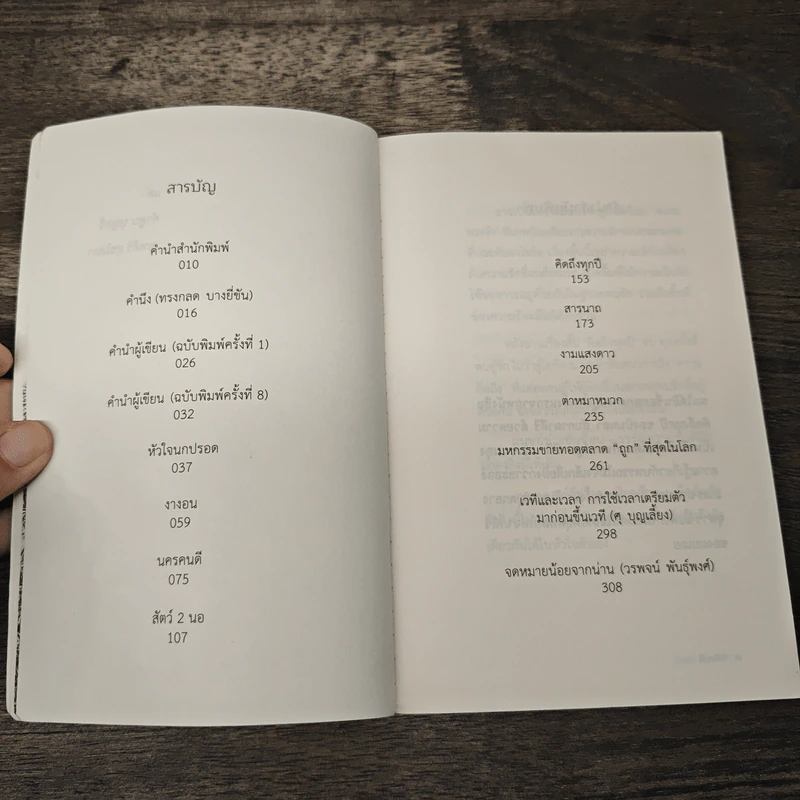 สารบัญ
คำนำสำนักพิมพ์
010
คำนึง (ทรงกลด บางยี่ขัน)
016
คำนำผู้เขียน (ฉบับพิมพ์ครั้งที่ 1)
026
คำนำผู้เขียน (ฉบับพิมพ์ครั้งที่ 8)
032
หัวใจนกปรอด
037
งางอน
059
นครคนดี
075
สัตว์ 2 นอ
107
คิดถึงทุกปี
153
สารนาถ
173
งามแสงดาว
205
ตาหมาหมวก
235
มหกรรมขายทอดตลาด “ถูก” ที่สุดในโลก
261
เวทีและเวลา การใช้เวลาเตรียมตัว
มาก่อนขึ้นเวที (ศุ บุญเลี้ยง)
298
จดหมายน้อยจากน่าน (วรพจน์ พันธุ์พงศ์)
308